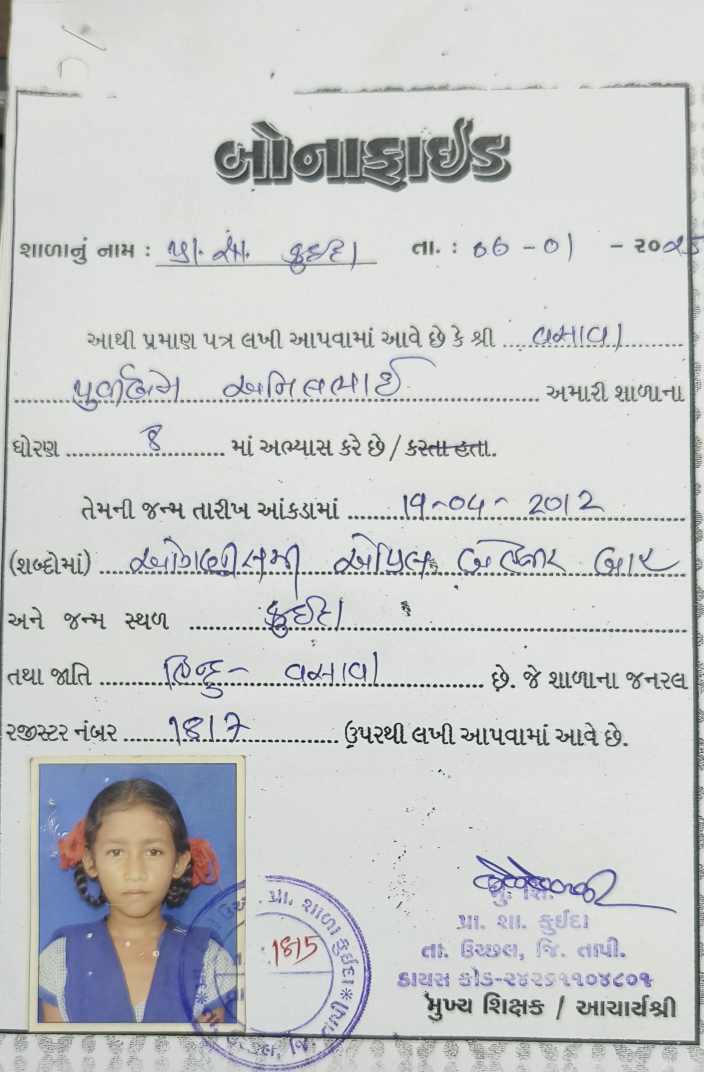 બોનાફાઈડ
શાળાનું નામ : પ્રા. શા. કુઈદા તા. : ૦6 - ૦1 - ૨૦૨5
આથી પ્રમાણ પત્ર લખી આપવામાં આવે છે કે શ્રી વસાવા
અનિલભાઈ અમારી શાળાના
ધોરણ માં અભ્યાસ કરે છે / કરતા હતા.
તેમની જન્મ તારીખ આંકડામાં 19-04-2012
(શબ્દોમાં) ઓગણીસમી એપ્રિલ બે હજાર બાર
અને જન્મ સ્થળ કુઈદા
તથા જાતિ હિન્દુ - વસાવા છે. જે શાળાના જનરલ
રજીસ્ટર નંબર 1817 ઉપરથી લખી આપવામાં આવે છે.
પ્રા. શાળા કુઈદા
1875
મુ. શિ.
પ્રા. શા. કુઈદા
તા. ઉચ્છલ, જિ. તાપી.
ડાયસ કોડ-૨૪૨૬૧૧૦૪૮૦૧
મુખ્ય શિક્ષક / આચાર્યશ્રી